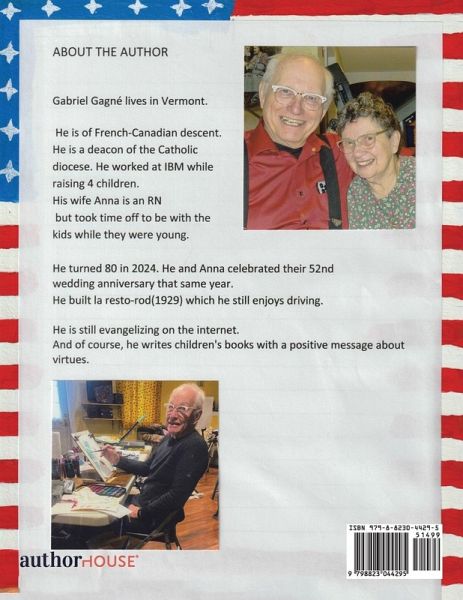 ABOUT THE AUTHOR
Gabriel Gagné lives in Vermont.
He is of French-Canadian descent.
He is a deacon of the Catholic
diocese. He worked at IBM while
raising 4 children.
His wife Anna is an RN
but took time off to be with the
kids while they were young.
He turned 80 in 2024. He and Anna celebrated their 52nd
wedding anniversary that same year.
He built la resto-rod(1929) which he still enjoys driving.
He is still evangelizing on the internet.
And of course, he writes children's books with a positive message about
virtues.
authorHOUSE®
ISBN 979-8-8230-4429-5
51499
9 798823 044295